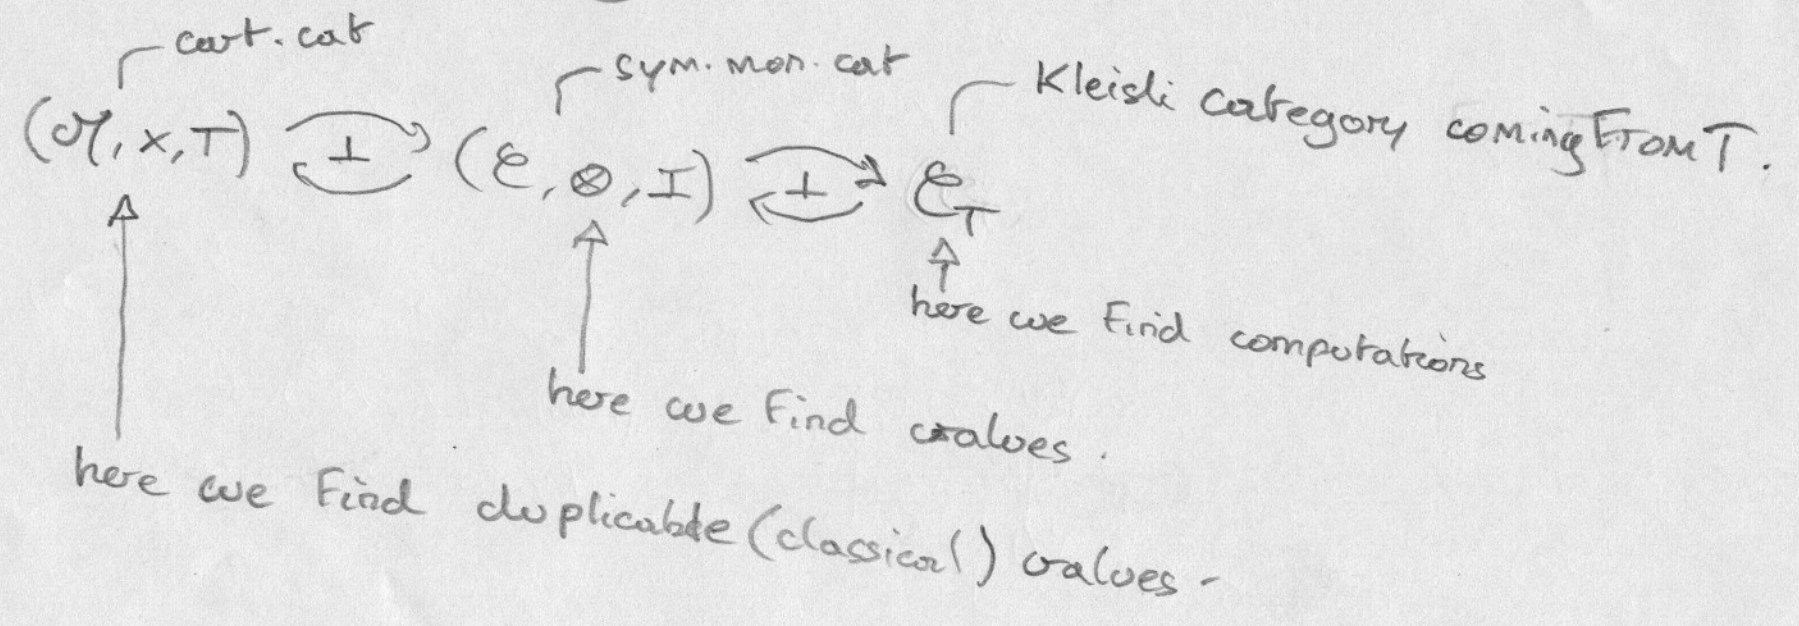 cart. cat
sym. mon. cat
Kleisli category coming From T.
(M, ×, T) ⊥ (C, ⊗, I) ⊥ C_T
here we Find computations
here we Find values.
here we Find duplicable (classical) values.